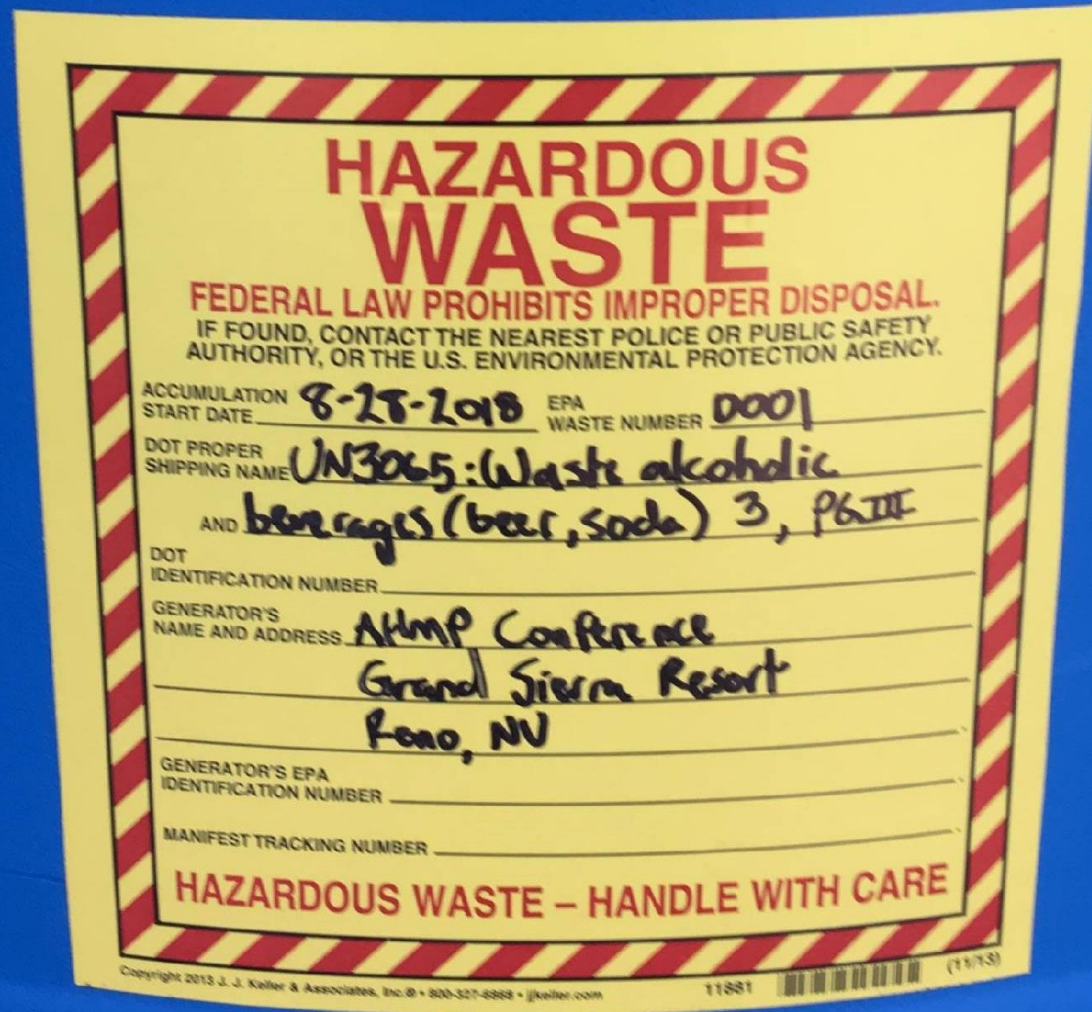 HAZARDOUS
WASTE
FEDERAL LAW PROHIBITS IMPROPER DISPOSAL.
IF FOUND, CONTACT THE NEAREST POLICE OR PUBLIC SAFETY
AUTHORITY, OR THE U.S. ENVIRONMENTAL PROTECTION AGENCY.
ACCUMULATION START DATE 8-28-2018 EPA WASTE NUMBER D001
DOT PROPER SHIPPING NAME UN3065: Waste alcoholic
AND beverages (beer, soda) 3, PGIII
DOT
IDENTIFICATION NUMBER
GENERATOR'S
NAME AND ADDRESS AHMP Conference
Grand Sierra Resort
Reno, NV
GENERATOR'S EPA
IDENTIFICATION NUMBER
MANIFEST TRACKING NUMBER
HAZARDOUS WASTE – HANDLE WITH CARE
Copyright 2013 J. J. Keller & Associates, Inc.® • 800-327-6868 • jjkeller.com 11881 (11/13)